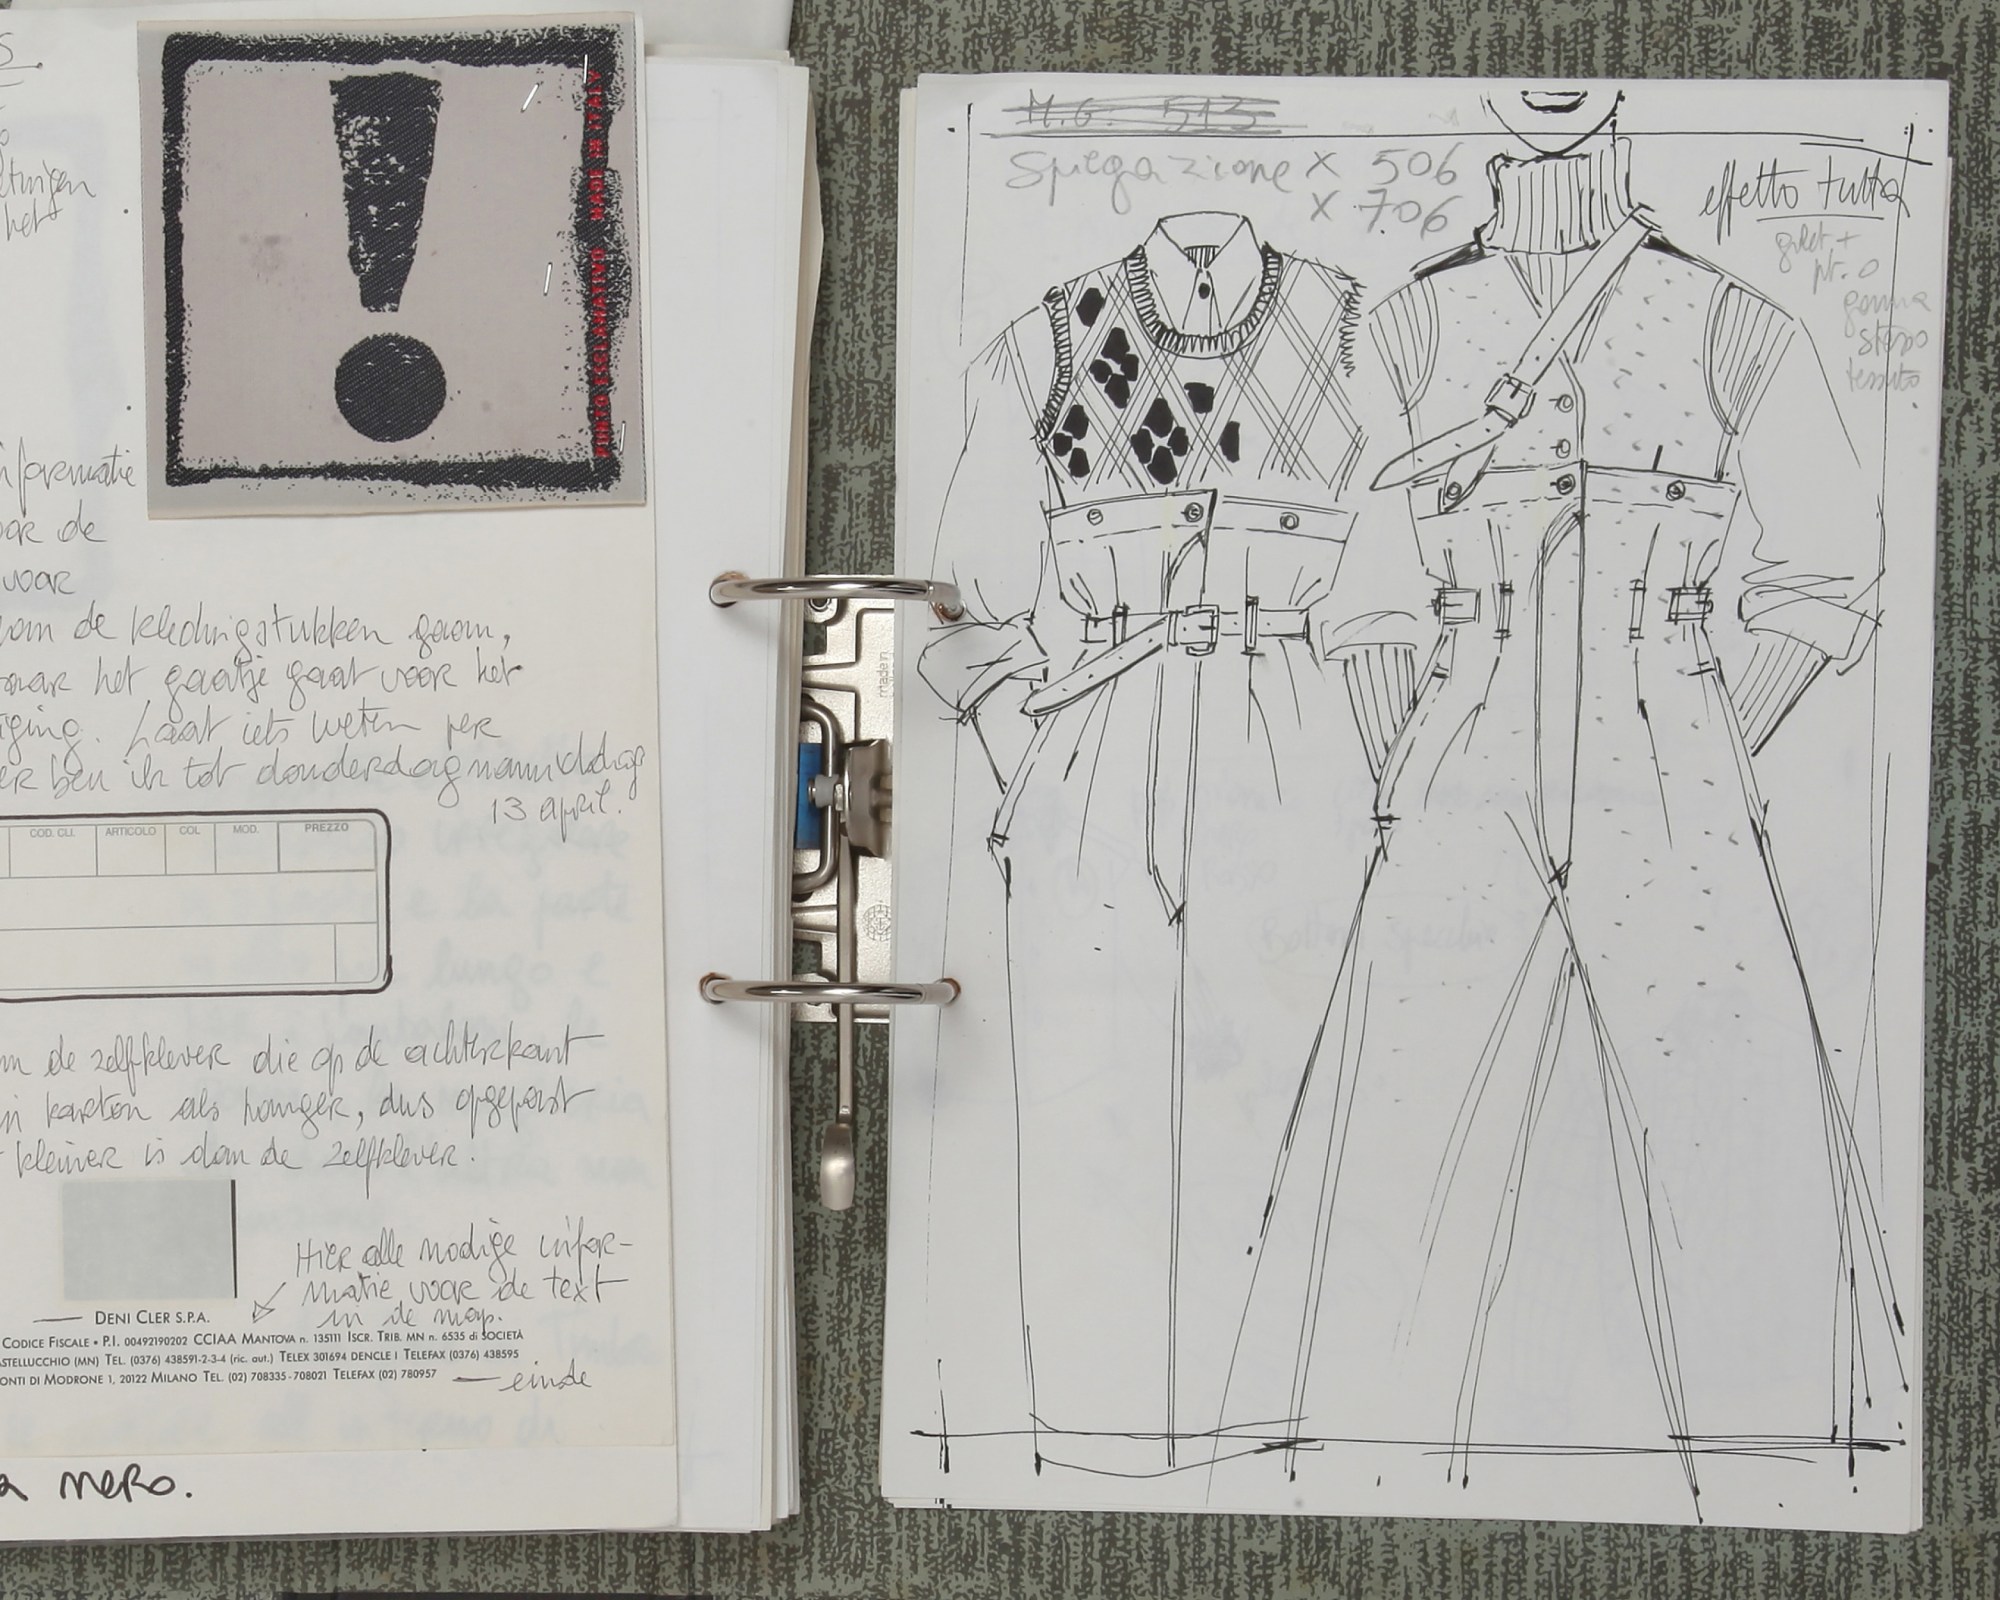 s.
etuigen
het
PUNTO ESCLAMATIVO MADE IN ITALY
informatie
oor de
voor
van de kledingstukken gaan,
maar het gaatje gaat voor het
iging. Laat iets weten per
er ben ik tot donderdagnamiddag
13 april.
COD. CLI. ARTICOLO COL MOD. PREZZO
de zelfklever die op de achterkant
in karton als hanger, dus opgepast
kleiner is dan de zelfklever.
Hier alle nodige infor-
matie voor de text
in de map.
DENI CLER S.P.A.
CODICE FISCALE • P.I. 00492190202 CCIAA MANTOVA n. 135111 ISCR. TRIB. MN n. 6535 di SOCIETÀ
ASTELLUCCHIO (MN) TEL. (0376) 438591-2-3-4 (ric. aut.) TELEX 301694 DENCLE I TELEFAX (0376) 438595
ONTI DI MODRONE 1, 20122 MILANO TEL. (02) 708335-708021 TELEFAX (02) 780957 — einde
a nero.
M.G. 513
Spiegazione x 506
x 706
effetto tutta
gilet +
pt. 0
gonna
stesso
tessuto